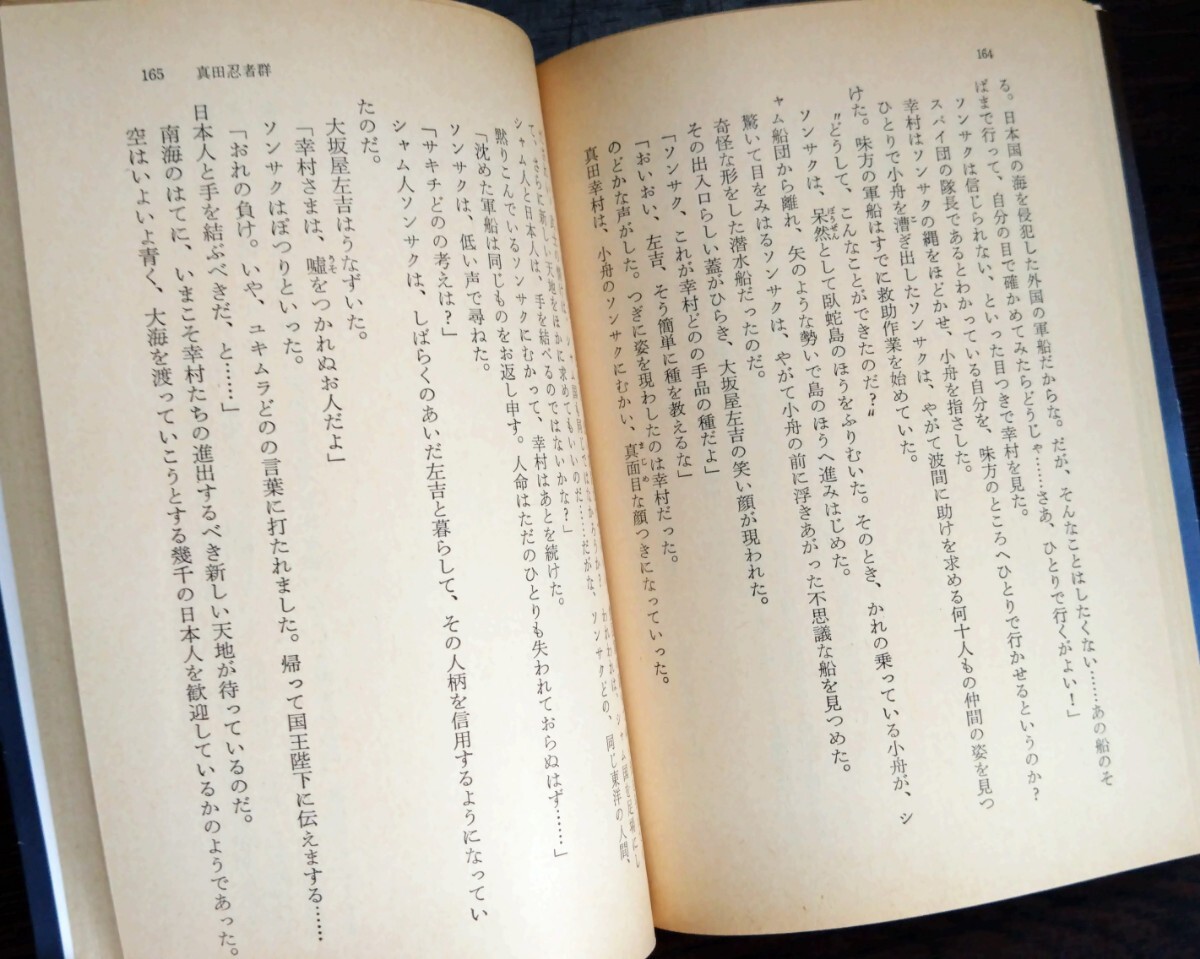 164
る。日本国の海を侵犯した外国の軍船だからな。だが、そんなことはしたくない……あの船のそ
ばまで行って、自分の目で確かめてみたらどうじゃ……さあ、ひとりで行くがよい!」
ソンサクは信じられない、といった目つきで幸村を見た。
スパイ団の隊長であるとわかっている自分を、味方のところへひとりで行かせるというのか?
幸村はソンサクの縄をほどかせ、小舟を指さした。
ひとりで小舟を漕ぎ出したソンサクは、やがて波間に助けを求める何十人もの仲間の姿を見つ
けた。味方の軍船はすでに救助作業を始めていた。
〝どうして、こんなことができたのだ?〟
ソンサクは、呆然として臥蛇島のほうをふりむいた。そのとき、かれの乗っている小舟が、シ
ャム船団から離れ、矢のような勢いで島のほうへ進みはじめた。
驚いて目をみはるソンサクは、やがて小舟の前に浮きあがった不思議な船を見つめた。
奇怪な形をした潜水船だったのだ。
その出入口らしい蓋がひらき、大坂屋左吉の笑い顔が現われた。
「ソンサク、これが幸村どのの手品の種だよ」
「おいおい、左吉、そう簡単に種を教えるな」
のどかな声がした。つぎに姿を現わしたのは幸村だった。
真田幸村は、小舟のソンサクにむかい、真面目な顔つきになっていった。
165 真田忍者群
ソンサクどの、同じ東洋の人間、
シャム人と日本人は、手を結べるのではないかな?」
黙りこんでいるソンサクにむかって、幸村はあとを続けた。
「沈めた軍船は同じものをお返し申す。人命はただのひとりも失われておらぬはず……」
ソンサクは、低い声で尋ねた。
「サキチどのの考えは?」
シャム人ソンサクは、しばらくのあいだ左吉と暮らして、その人柄を信用するようになってい
たのだ。
大坂屋左吉はうなずいた。
「幸村さまは、嘘をつかれぬお人だよ」
ソンサクはぽつりといった。
「おれの負け。いや、ユキムラどのの言葉に打たれました。帰って国王陛下に伝えまする……
日本人と手を結ぶべきだ、と……」
南海のはてに、いまこそ幸村たちの進出するべき新しい天地が待っているのだ。
空はいよいよ青く、大海を渡っていこうとする幾千の日本人を歓迎しているかのようであった。